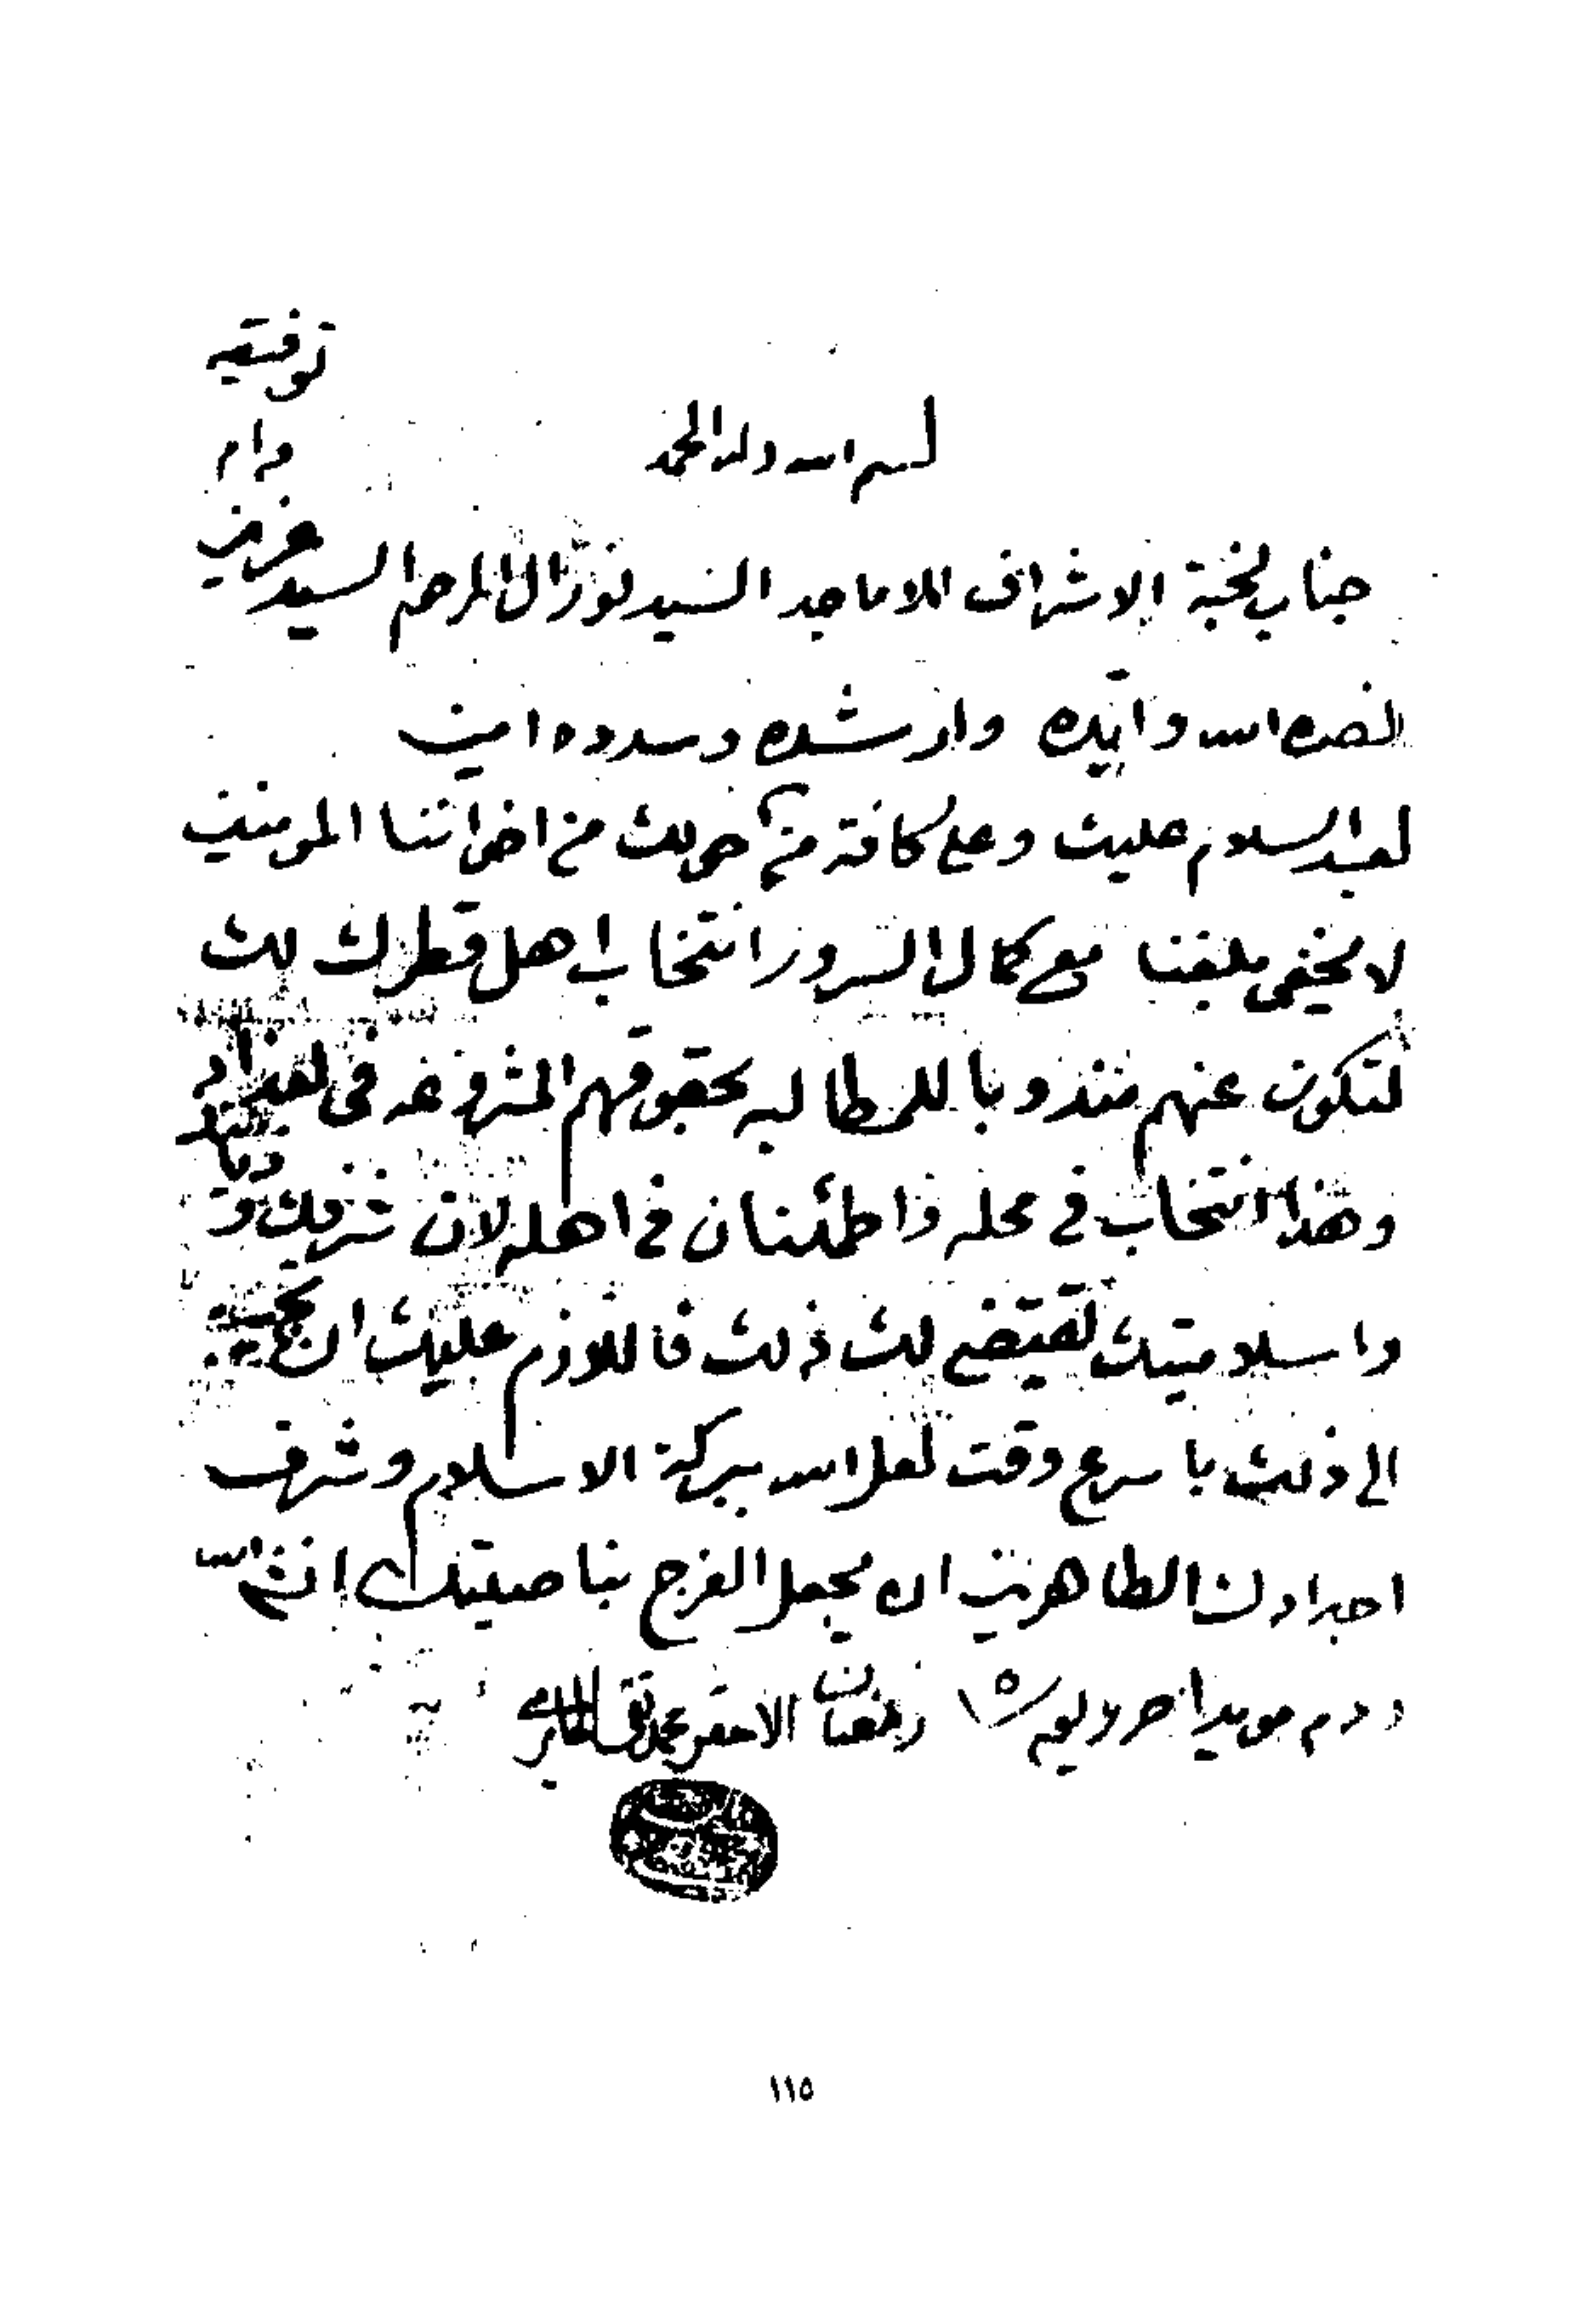 بسم الله وله الحمد
جناب نخبة الاشراف الاماجد السيد نور ال المرحوم السيد عزيز
دام
توفيقه
نصره الله وايّده وارشده وسدده امين
بعد السلام عليك وعلى كافة من حولك من اخواننا المومنين
لا يخفى بلغنا مع كمال السرور انتخاب اهل قطرك لك
لتكون عنهم مندوبا للمطالبه بحقوقهم المشروعه في بغداد
وهذا انتخاب في محله واطمئنان في اهله لان شرفك وديانتك
واسلاميتك تقتضي لك ذلك فاللازم عليك ان تجيب
الى ذلك باسرع وقت لعل الله ببركة الاسلام وشرف
اجدادك الطاهرين ان يجعل الفرج بناصيتك انشاء الله
ودم مويدا حرر ليوم ١٥ رمضان الاحقر محمد تقي الحائري
١١٥